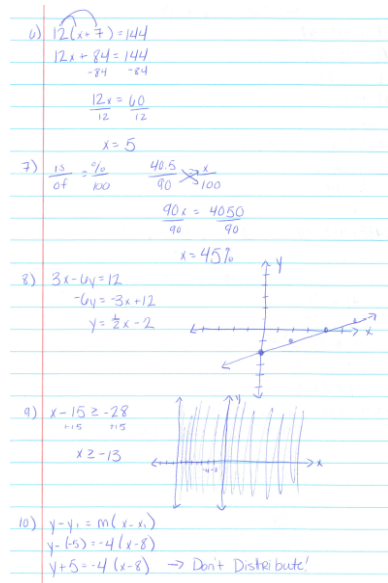 6) 12(x+7)=144
12x + 84 = 144
-84 -84
12x = 60
12 12
x = 5
7) is/of = %/100 40.5/90 x/100
90x = 4050
90 90
x = 45%
8) 3x-6y=12
-6y = -3x+12
y = 1/2x - 2
y
x
9) x-15 ≥ -28
+15 +15
x ≥ -13
y
x
10) y-y₁ = m(x-x₁)
y-(-5) = -4(x-8)
y+5 = -4(x-8) → Don't Distribute!